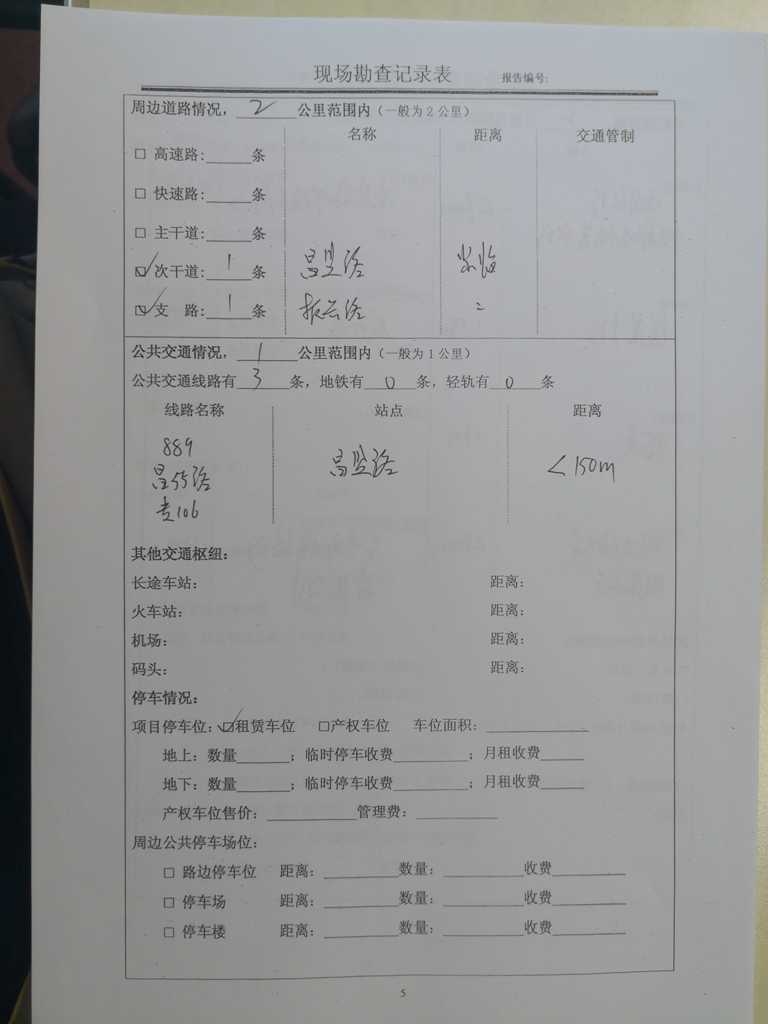 现场勘查记录表 报告编号:
周边道路情况，2公里范围内（一般为2公里）
名称 距离 交通管制
□ 高速路:______条
□ 快速路:______条
□ 主干道:______条
☑ 次干道:1条 昌盟路
☑ 支 路:1条 振兴路 〃
公共交通情况，1公里范围内（一般为1公里）
公共交通线路有3条，地铁有0条，轻轨有0条
线路名称 站点 距离
889
昌55路 昌盟路 <150m
专106
其他交通枢纽:
长途车站: 距离:
火车站: 距离:
机场: 距离:
码头: 距离:
停车情况:
项目停车位: ☑租赁车位 □产权车位 车位面积:____________
地上: 数量______; 临时停车收费__________; 月租收费______
地下: 数量______; 临时停车收费__________; 月租收费______
产权车位售价: ____________管理费: ___________
周边公共停车场位:
□ 路边停车位 距离: __________数量: ___________收费__________
□ 停车场 距离: __________数量: ___________收费__________
□ 停车楼 距离: __________数量: ___________收费__________
5